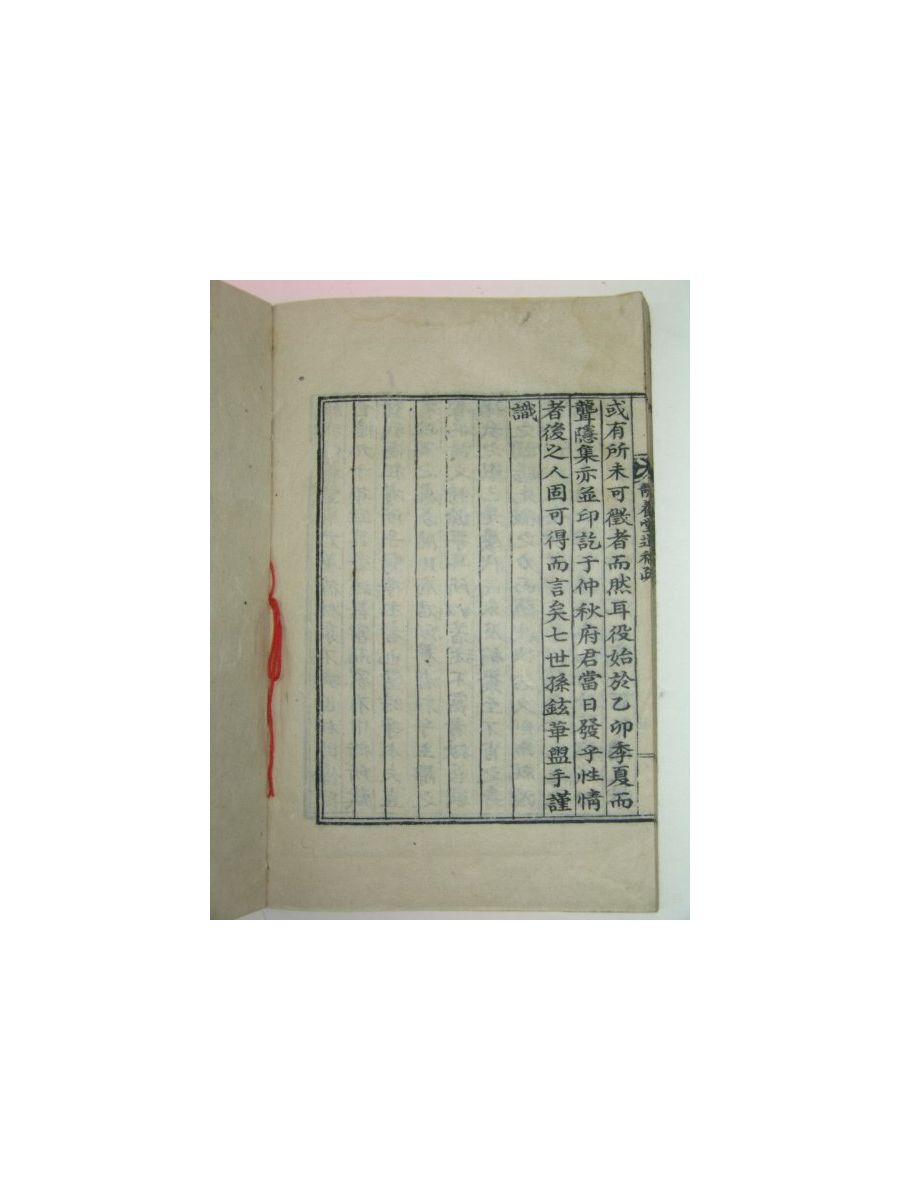 或有所未可徵者而然耳役始於乙卯季夏而
聾隱集亦並印訖于仲秋府君當日發乎性情
者後之人固可得而言矣七世孫鉉華盥手謹
識
養堂遺稿跋